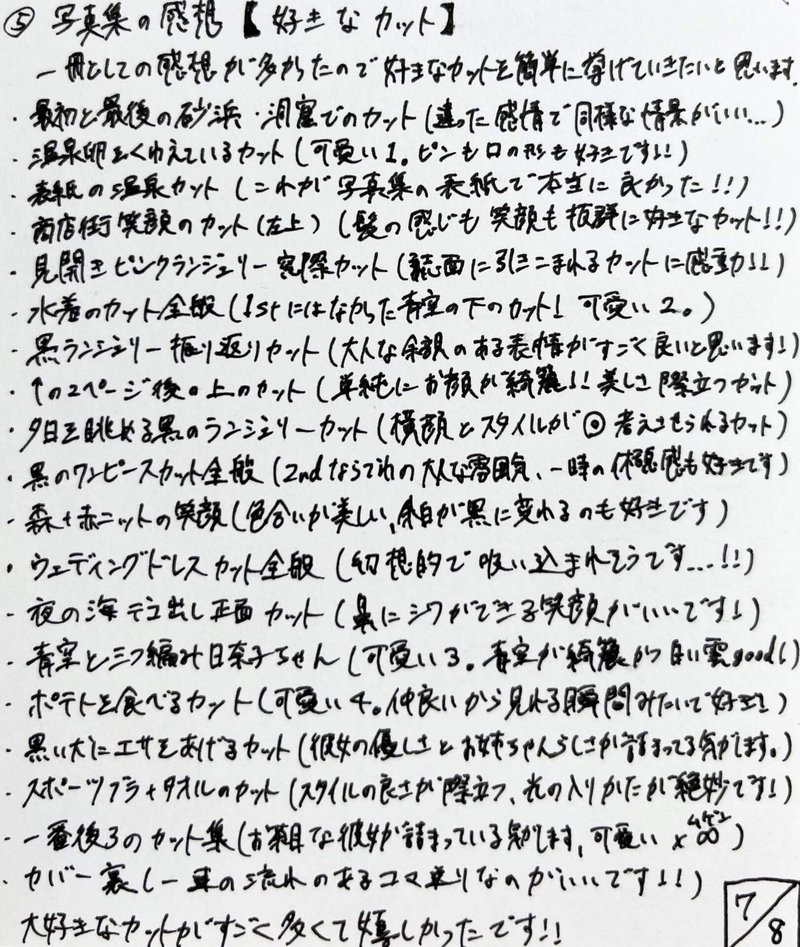 ⑤ 写真集の感想【好きなカット】
一冊としての感想が多かったので好きなカットを簡単に挙げていきたいと思います。
・最初と最後の砂浜・洞窟でのカット(違った感情で同様な情景がいい…)
・温泉卵をくわえているカット(可愛い1。ピンも口の形も好きです!!)
・表紙の温泉カット(これが写真集の表紙で本当に良かった!!)
・商店街笑顔のカット(左上)(髪の感じも笑顔も抜群に好きなカット!!)
・見開きピンクランジェリー窓際カット(紙面に引きこまれるカットに感動!!)
・水着のカット全般(1stにはなかった青空の下のカット! 可愛い2。)
・黒ランジェリー振り返りカット(大人な余裕のある表情がすごく良いと思います!)
・↑の2ページ後の上のカット(単純にお顔が綺麗!! 美しさ際立つカット)
・夕日を眺める黒のランジェリーカット(横顔とスタイルが◎ 考えさせられるカット)
・黒のワンピースカット全般(2ndならでわの大人な雰囲気、一時の休憩感も好きです)
・森+赤ニットの笑顔(色合いが美しい、余白が黒に変わるのも好きです)
・ウェディングドレスカット全般(幻想的で吸い込まれそうです…!!)
・夜の海 舌出し正面カット(鼻にシワができる笑顔がいいです!)
・青空とミツ編み日奈子ちゃん(可愛い3。青空が綺麗かつ白い雲good!)
・ポテトを食べるカット(可愛い4。仲良いから見れる瞬間みたいで好き!)
・黒い犬にエサをあげるカット(彼女の優しさとお姉ちゃんらしさが詰まってる気がします。)
・スポーツブラ+タオルのカット(スタイルの良さが際立つ、光の入りかたが絶妙です!)
・一番後ろのカット集(お茶目な彼女が詰まっている気がします、可愛い×∞)
・カバー裏(一連の流れのあるコマ送りなのがいいです!!)
大好きなカットがすごく多くて嬉しかったです!!
7/8